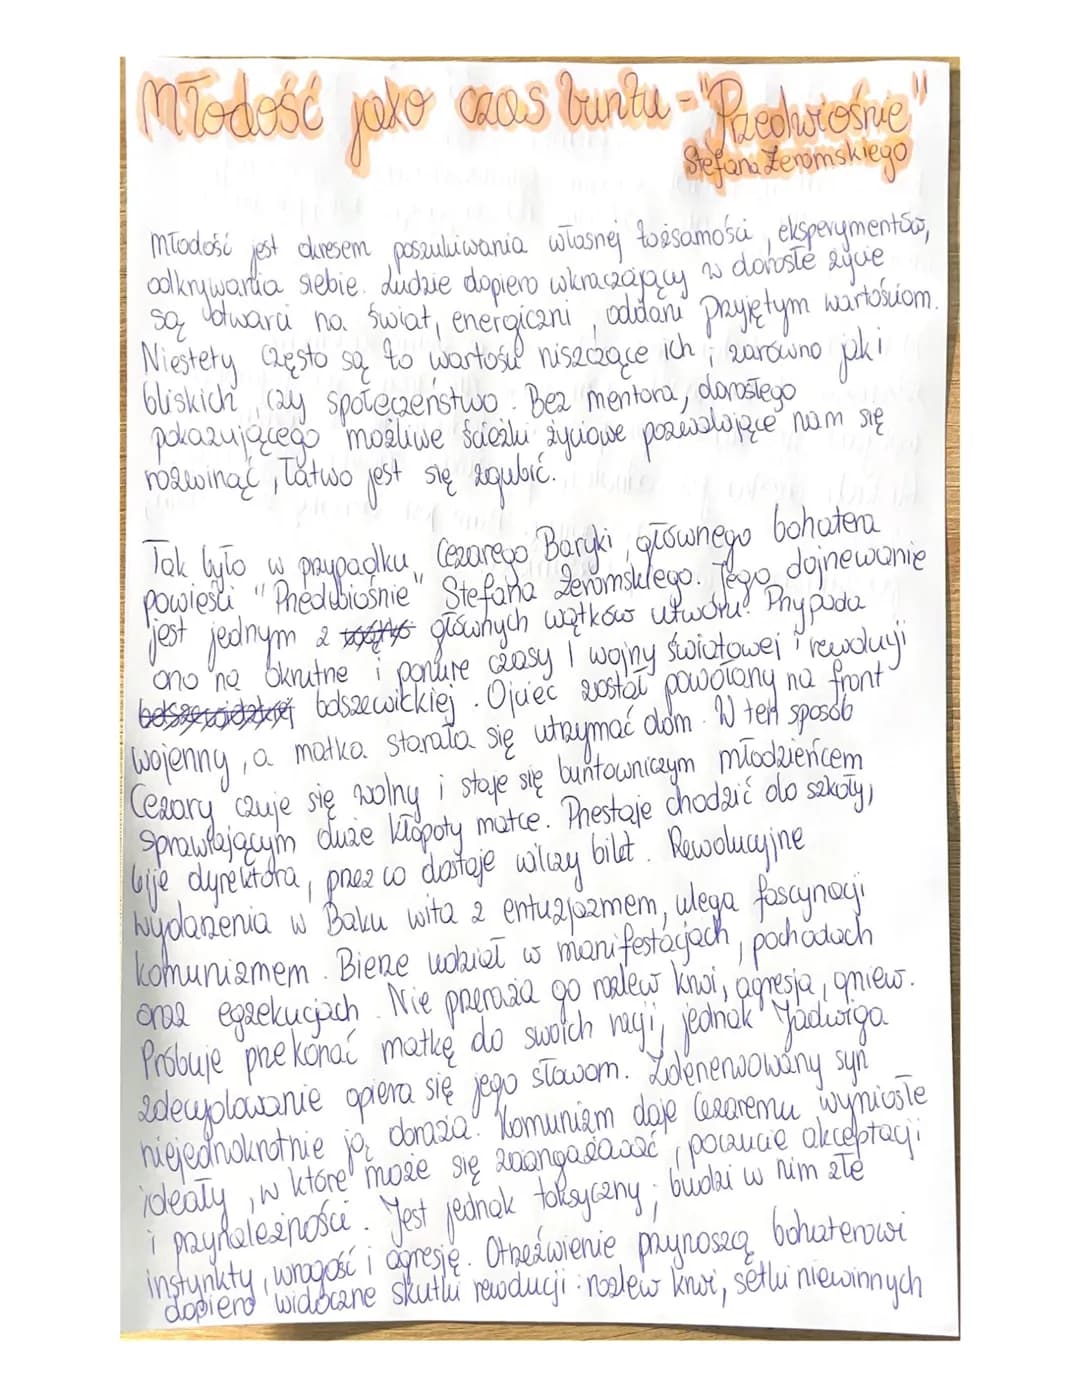 Młodość jako czas buntu - "Przedwiośnie"
Stefana Żeromskiego
Młodość jest okresem poszukiwania własnej tożsamości, eksperymentów,
odkrywania siebie. Ludzie dopiero wkraczający w dorosłe życie
są otwarci na świat, energiczni, oddani przyjętym wartościom.
Niestety często są to wartości niszczące ich, zarówno jak i
bliskich, czy społeczeństwo. Bez mentora, dorosłego
pokazującego możliwe ścieżki życiowe pozwalające nam się
rozwinąć, łatwo jest się zgubić.
Tak było w przypadku Cezarego Baryki, głównego bohatera
powieści "Przedwiośnie" Stefana Żeromskiego. Jego dojrzewanie
jest jednym z głównych wątków utworu. Przypada
ono na okrutne i ponure czasy I wojny światowej i rewolucji
bolszewickiej. Ojciec został powołany na front
wojenny, a matka starała się utrzymać dom. W ten sposób
Cezary czuje się wolny i staje się buntowniczym młodzieńcem
sprawiającym duże kłopoty matce. Przestaje chodzić do szkoły,
bije dyrektora, przez co dostaje wilczy bilet. Rewolucyjne
wydarzenia w Baku wita z entuzjazmem, ulega fascynacji
komunizmem. Bierze udział w manifestacjach, pochodach
oraz egzekucjach. Nie przeraża go rozlew krwi, agresja, gniew.
Próbuje przekonać matkę do swoich racji, jednak Jadwiga
zdecydowanie opiera się jego słowom. Zdenerwowany syn
niejednokrotnie ją obraża. Komunizm daje Cezaremu wyniosłe
ideały, w które może się zaangażować, poczucie akceptacji
i przynależności. Jest jednak toksyczny, budzi w nim złe
instynkty, wrogość i agresję. Otrzeźwienie przynoszą bohaterowi
dopiero widoczne skutki rewolucji: rozlew krwi, setki niewinnych